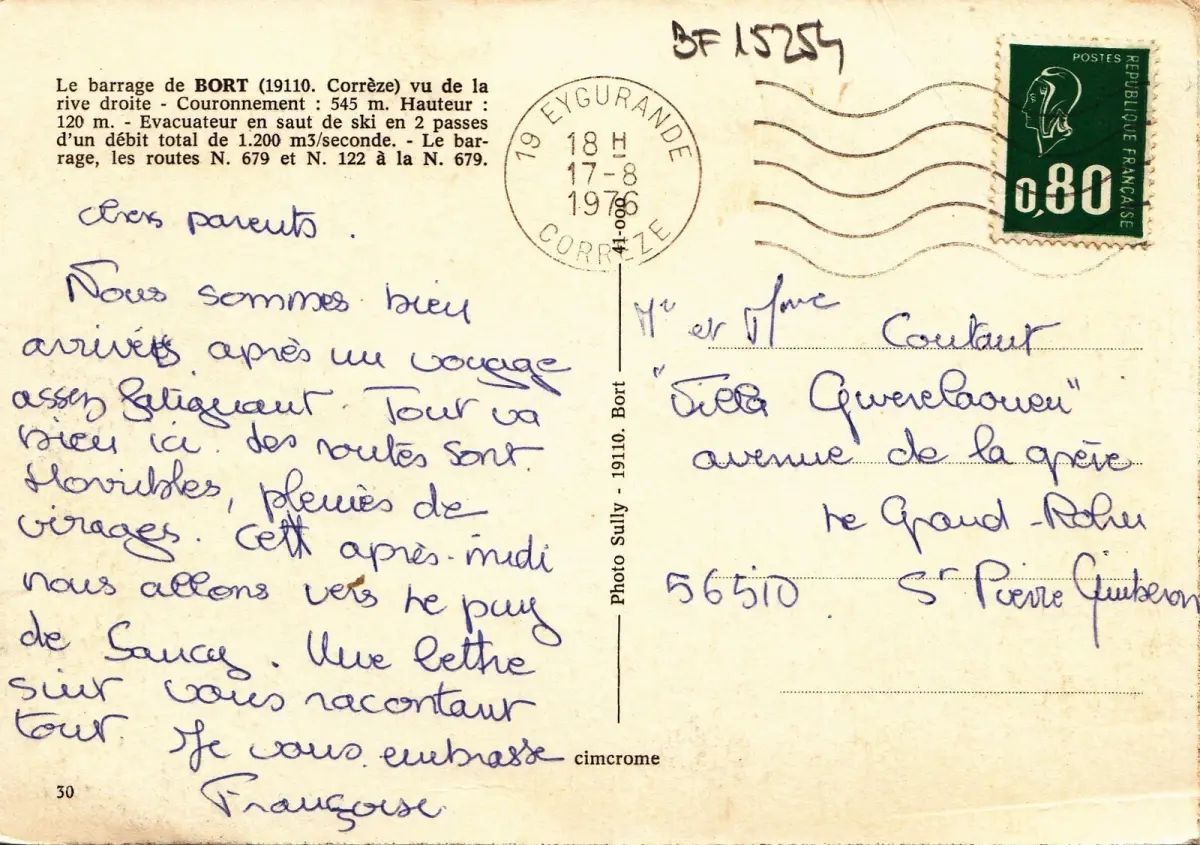 BF 15254
POSTES
REPUBLIQUE FRANÇAISE
0,80
19 EYGURANDE
18 H
17-8
1976
CORREZE
Le barrage de BORT (19110. Corrèze) vu de la
rive droite - Couronnement : 545 m. Hauteur :
120 m. - Evacuateur en saut de ski en 2 passes
d'un débit total de 1.200 m3/seconde. - Le bar-
rage, les routes N. 679 et N. 122 à la N. 679.
chers parents.
Nous sommes bien
arrivés après un voyage
assez fatiguant. Tout va
bien ici. Les routes sont
Horribles, pleines de
virages. Cett après-midi
nous allons vers le puy
de Sancy. Une lettre
suit vous racontant
tout. Je vous embrasse
Françoise
30
41-000
Photo Sully - 19110. Bort
cimcrome
Mr et Mme Coutant
"Villa Gwerelaouen"
avenue de la grève
Le Grand-Rohu
56510 St Pierre Quiberon